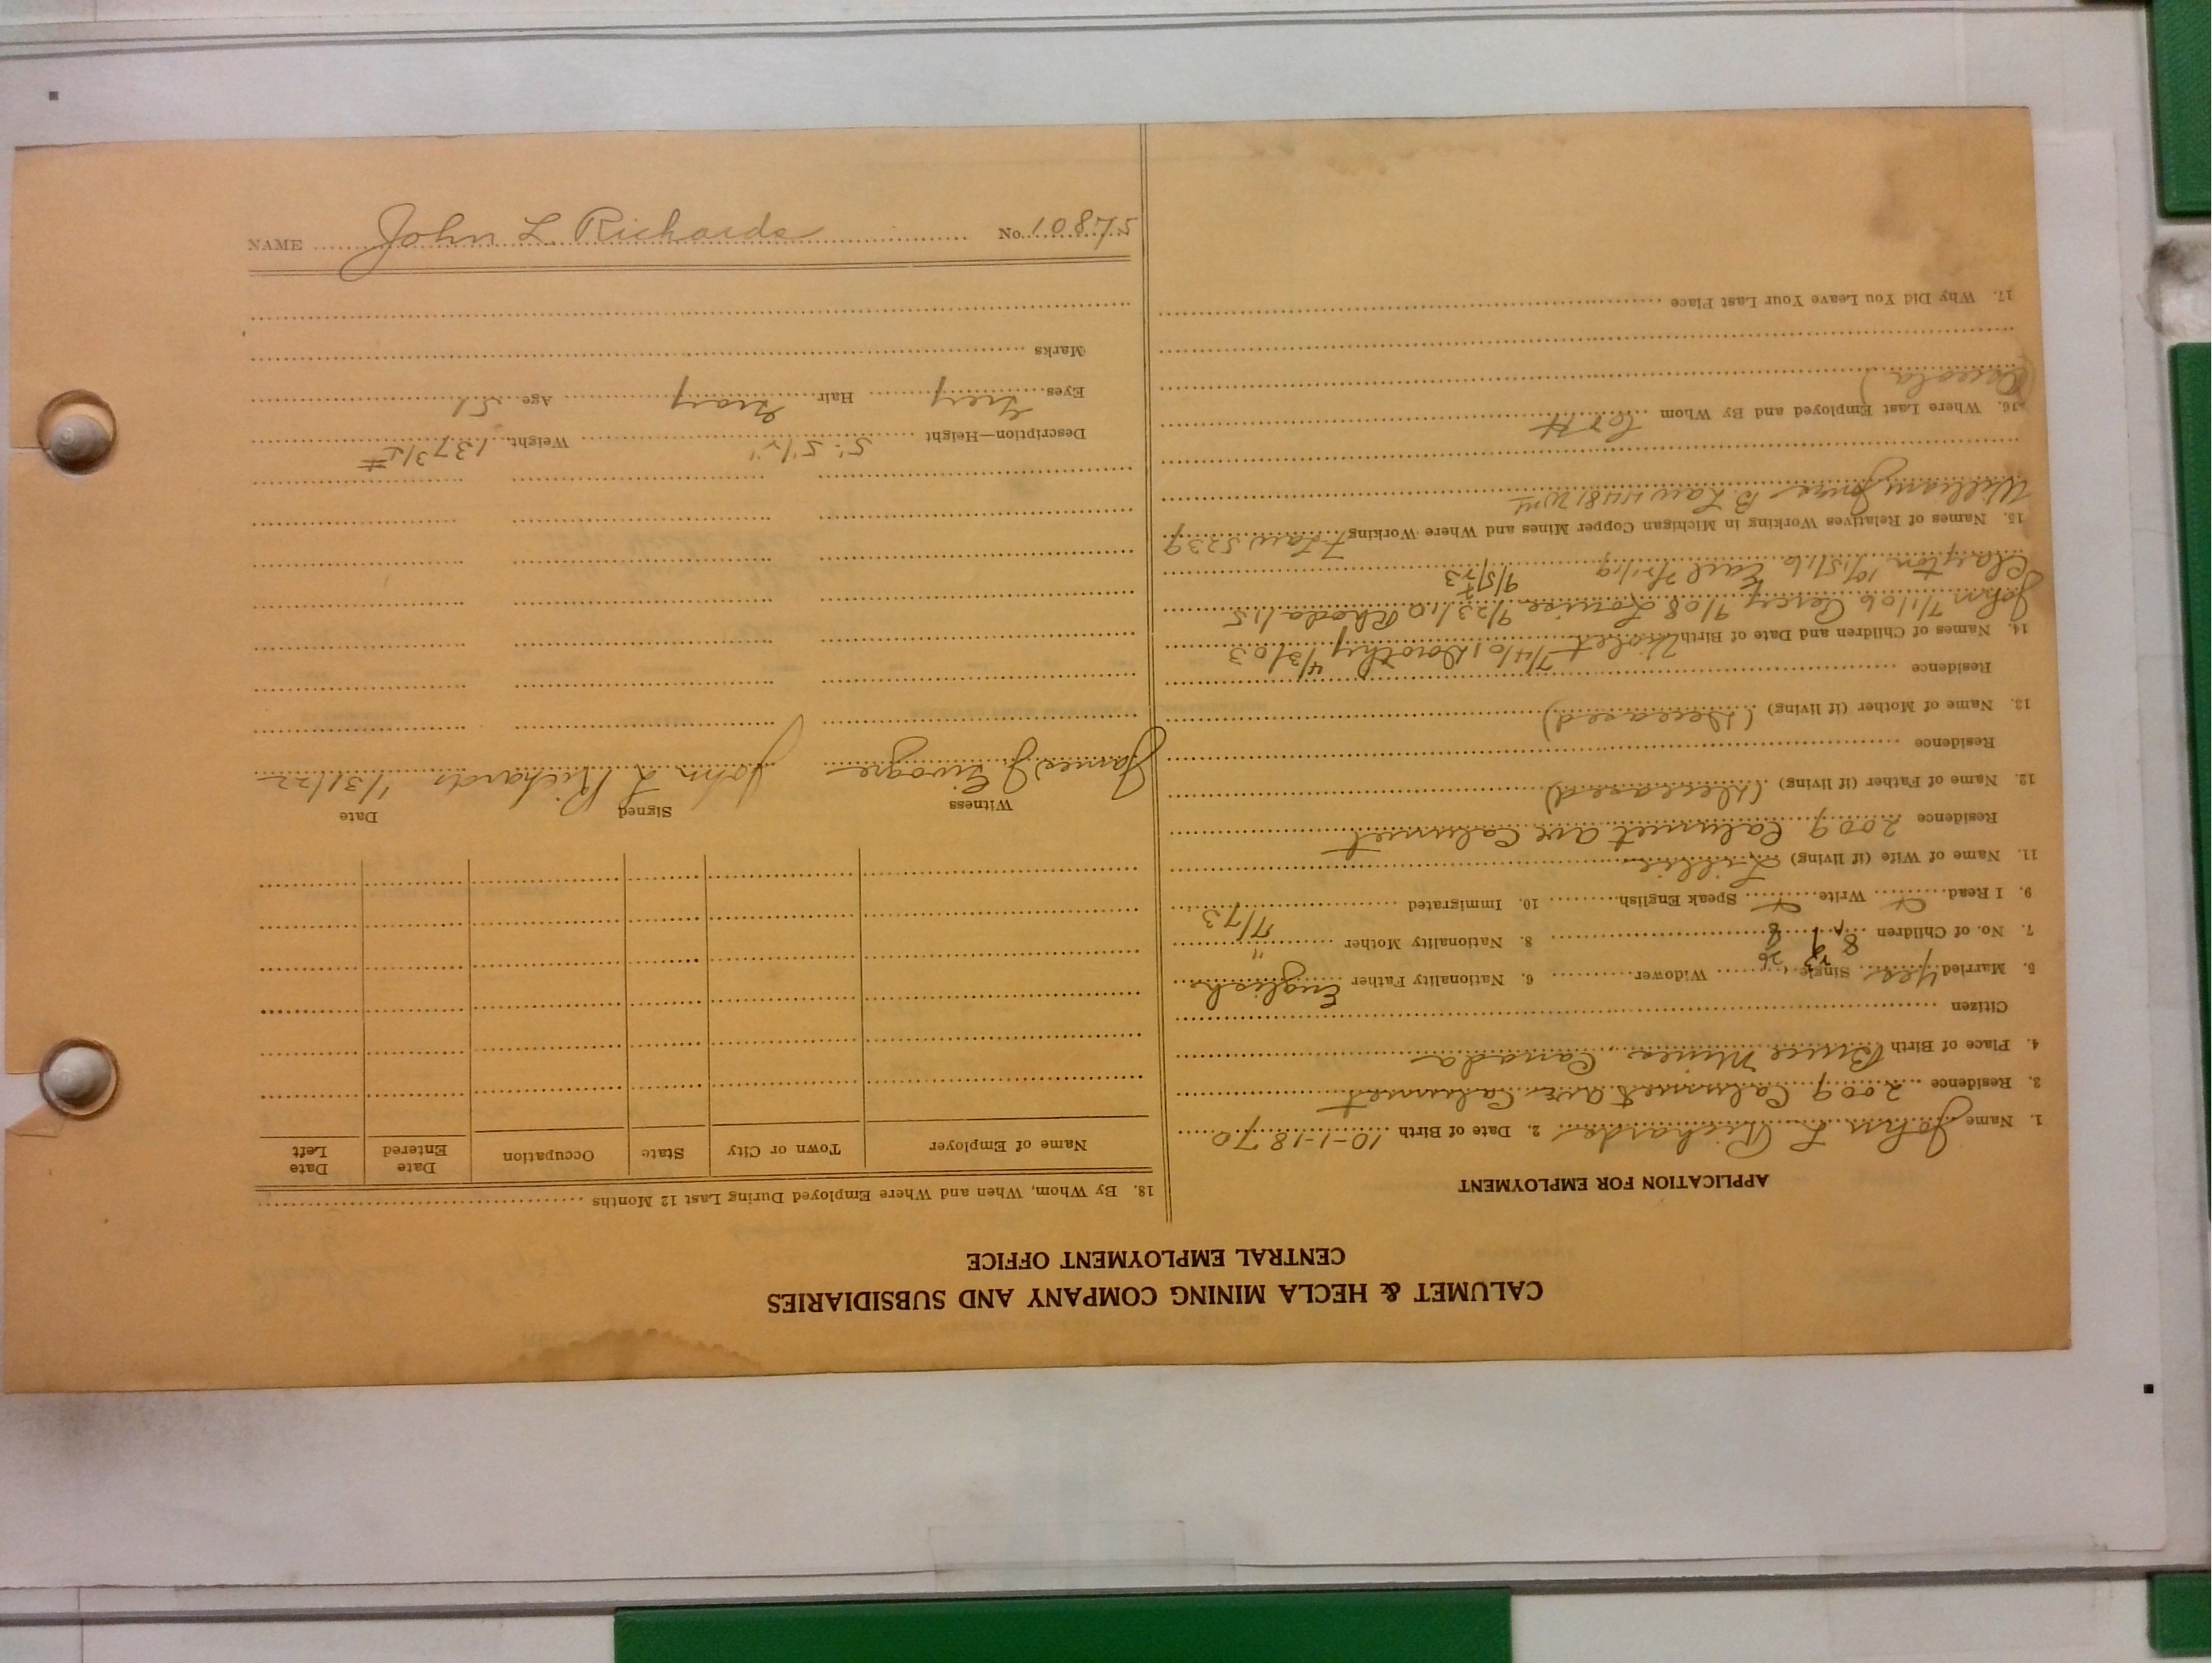 CALUMET & HECLA MINING COMPANY AND SUBSIDIARIES
CENTRAL EMPLOYMENT OFFICE
APPLICATION FOR EMPLOYMENT
1. Name John L Richards 2. Date of Birth 10-1-1870
3. Residence 2009 Calumet ave Calumet
4. Place of Birth Bruce Mines, Canada
Citizen
5. Married yes Single Widower 6. Nationality Father English
7. No. of Children 8 8. Nationality Mother "
9. I Read Write Speak English 10. Immigrated 7/73
11. Name of Wife (if living) Lillie
Residence 2009 Calumet ave Calumet
12. Name of Father (if living) (Deceased)
Residence
13. Name of Mother (if living) (Deceased)
Residence
14. Names of Children and Date of Birth Violet 7/4/01 Dorothy 4/3/03
John 7/1/06 Percy 9/08 Louise 9/23/10 Rhoda 1/15
Clayton 10/15/16 Earl 9/5/23
15. Names of Relatives Working in Michigan Copper Mines and Where Working F Law 5239
William B. Law 4481
16. Where Last Employed and By Whom C & H
(Osceola)
17. Why Did You Leave Your Last Place
18. By Whom, When and Where Employed During Last 12 Months
Name of Employer Town or City State Occupation Date Entered Date Left
Witness Signed Date
James J John L Richards 1/31/22
Description—Height 5' 5 1/2" Weight 137 1/2 #
Eyes Grey Hair Gray Age 51
Marks
NAME John L. Richards No. 10875